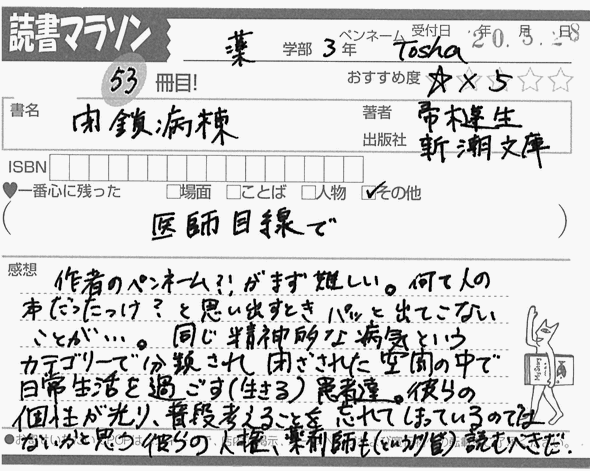 読書マラソン
薬 学部 3 年 ペンネーム Tosha 受付日 年 月 日 20.5.28
53 冊目! おすすめ度 ☆×5 ☆☆
書名 閉鎖病棟
著者 帚木蓬生
出版社 新潮文庫
ISBN
♥一番心に残った □場面 □ことば □人物 ✓その他
( 医師目線で )
感想
作者のペンネーム?!がまず難しい。何て人の
本だったっけ?と思い出すときパッと出てこない
ことが…。同じ精神的な病気という
カテゴリーで分類され閉ざされた空間の中で
日常生活を過ごす(生きる)患者達。彼らの
個性が光り、普段考えることを忘れてしまっているのでは
ないかと思う彼らの人権、薬剤師も(というか皆)読むべきだ.